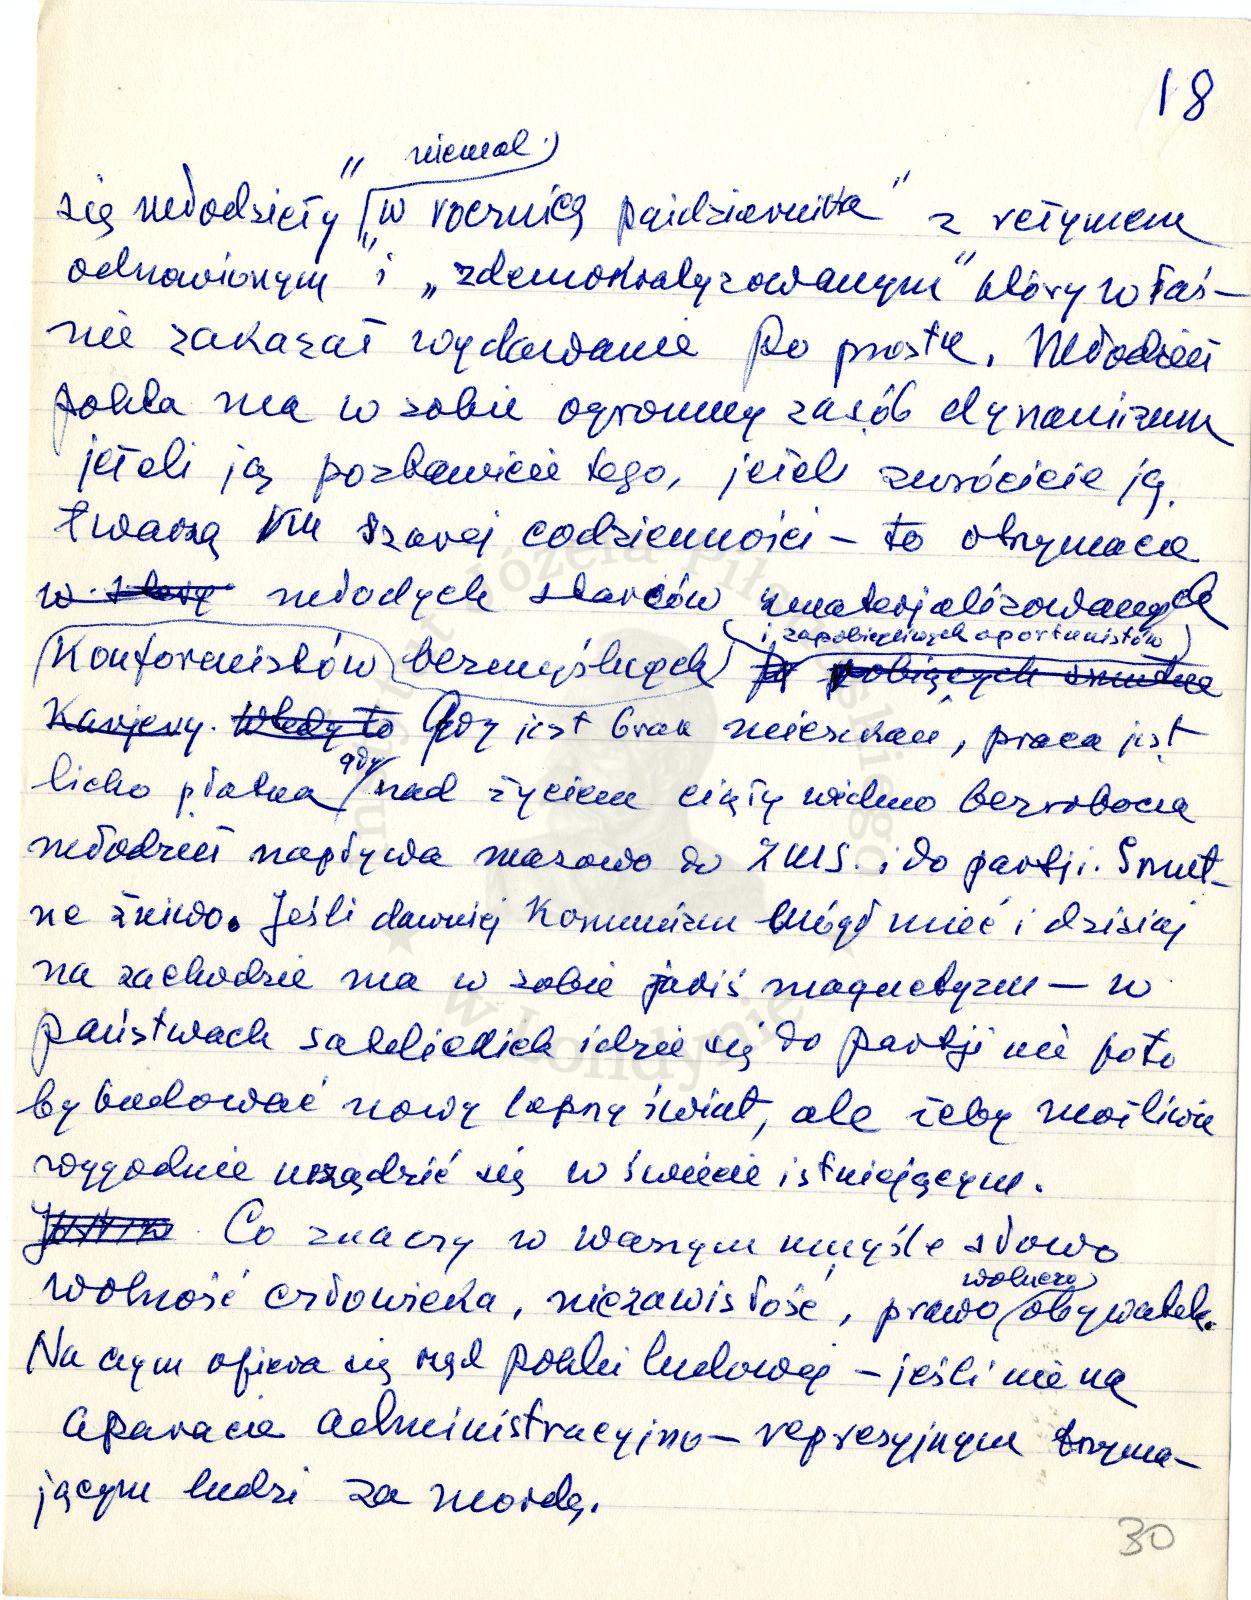 18
niemal
się młodzieży "w rocznicę października" z reżymem
odnowionym" i „zdemokratyzowanym" który właś-
nie zakazał wydawanie Po prostu. Młodzież
polska ma w sobie ogromny zasób dynamizmu
jeżeli ją pozbawicie tego, jeżeli zwrócicie ją
twarzą ku szarej codzienności – to otrzymacie
w młodych starców zmaterjalizowanych
i zapobiegliwych oportunistów
Konformistów bezmyślnych robiących smutne
Karjery. Wtedy to Gdy jest brak mieszkań, praca jest
gdy
licho płatna nad życiem ciąży widmo bezrobocia
młodzież napływa masowo do ZMS. i do partji. Smut-
ne żniwo. Jeśli dawniej Komunizm mógł mieć i dzisiaj
na zachodzie ma w sobie jakiś magnetyzm – w
państwach satelickich idzie się do partji nie poto
by budować nowy lepszy świat, ale żeby możliwie
wygodnie urządzić się w świecie istniejącym.
Co znaczy w waszym umyśle słowo
wolność człowieka, niezawisłość, prawo obywatela.
Na czym opiera się rząd polski ludowej – jeśli nie na
aparacie administracyjno – represyjnym trzyma-
jącym ludzi za mordę.
30
Instytut Józefa Piłsudskiego
w Londynie